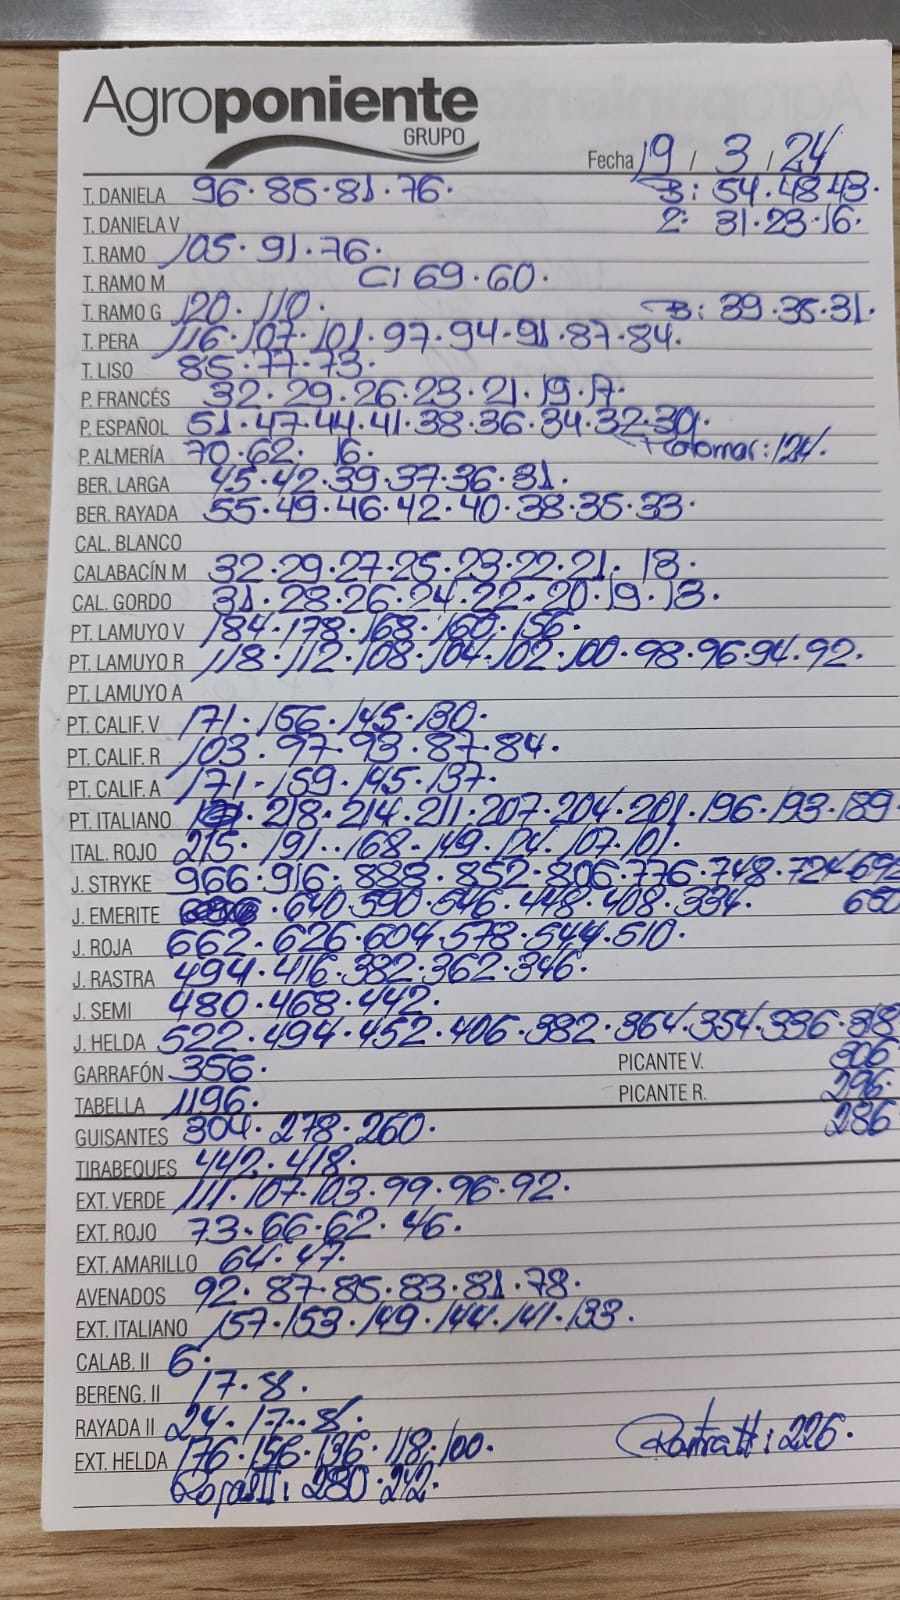 Agroponiente
GRUPO
Fecha 19 / 3 / 24
T. DANIELA 96.85.81.76. B: 54.48.43.
T. DANELA V 2: 31.23.16.
T. RAMO 105.91.76.
T. RAMO M C: 69.60.
T. RAMO G 120.110. B: 39.35.31.
T. PERA 116.107.101.97.94.91.87.84.
T. LISO 85.77.73.
P. FRANCÉS 32.29.26.23.21.19.17.
P. ESPAÑOL 51.47.44.41.38.36.34.32.30.
P. ALMERÍA 70.62. 16. : 124.
BER. LARGA 45.42.39.37.36.31.
BER. RAYADA 55.49.46.42.40.38.35.33.
CAL. BLANCO
CALABACÍN M 32.29.27.25.23.22.21. 18.
CAL. GORDO 31.28.26.24.22.20.19.18.
PT. LAMUYO V 184.178.168.160.156.
PT. LAMUYO R 118.112.108.104.102.100.98.96.94.92.
PT. LAMUYO A
PT. CALIF. V 171.156.145.130.
PT. CALIF. R 103.97.93.87.84.
PT. CALIF. A 171-159.145.137.
PT. ITALIANO .218.214.211.207.204.201.196.193.189.
ITAL. ROJO 215.191..168.149.124.107.101.
J. STRYKE 966.916.888.852.806.776.748.724.692
J. EMERITE .640.590.546.448.408.334. 650
J. ROJA 662.626.604.578.544.510.
J. RASTRA 494.416.382.362.346.
J. SEMI 480.468.442.
J. HELDA 522.494.452.406.382.364.354.336.318
GARRAFÓN 356. PICANTE V. 306
TABELLA 1196. PICANTE R. 296.
GUISANTES 304.278.260. 286
TIRABEQUES 442.418.
EXT. VERDE 111.107.103.99.96.92.
EXT. ROJO 73.66.62.46.
EXT. AMARILLO 64.47.
AVENADOS 92.87.85.83.81.78.
EXT. ITALIANO 157.153.149.144.141.133.
CALAB. II 6.
BERENG. II 17.8.
RAYADA II 24.17.8.
EXT. HELDA 176.156.136.118.100. : 226.
Roja II: 280.242.